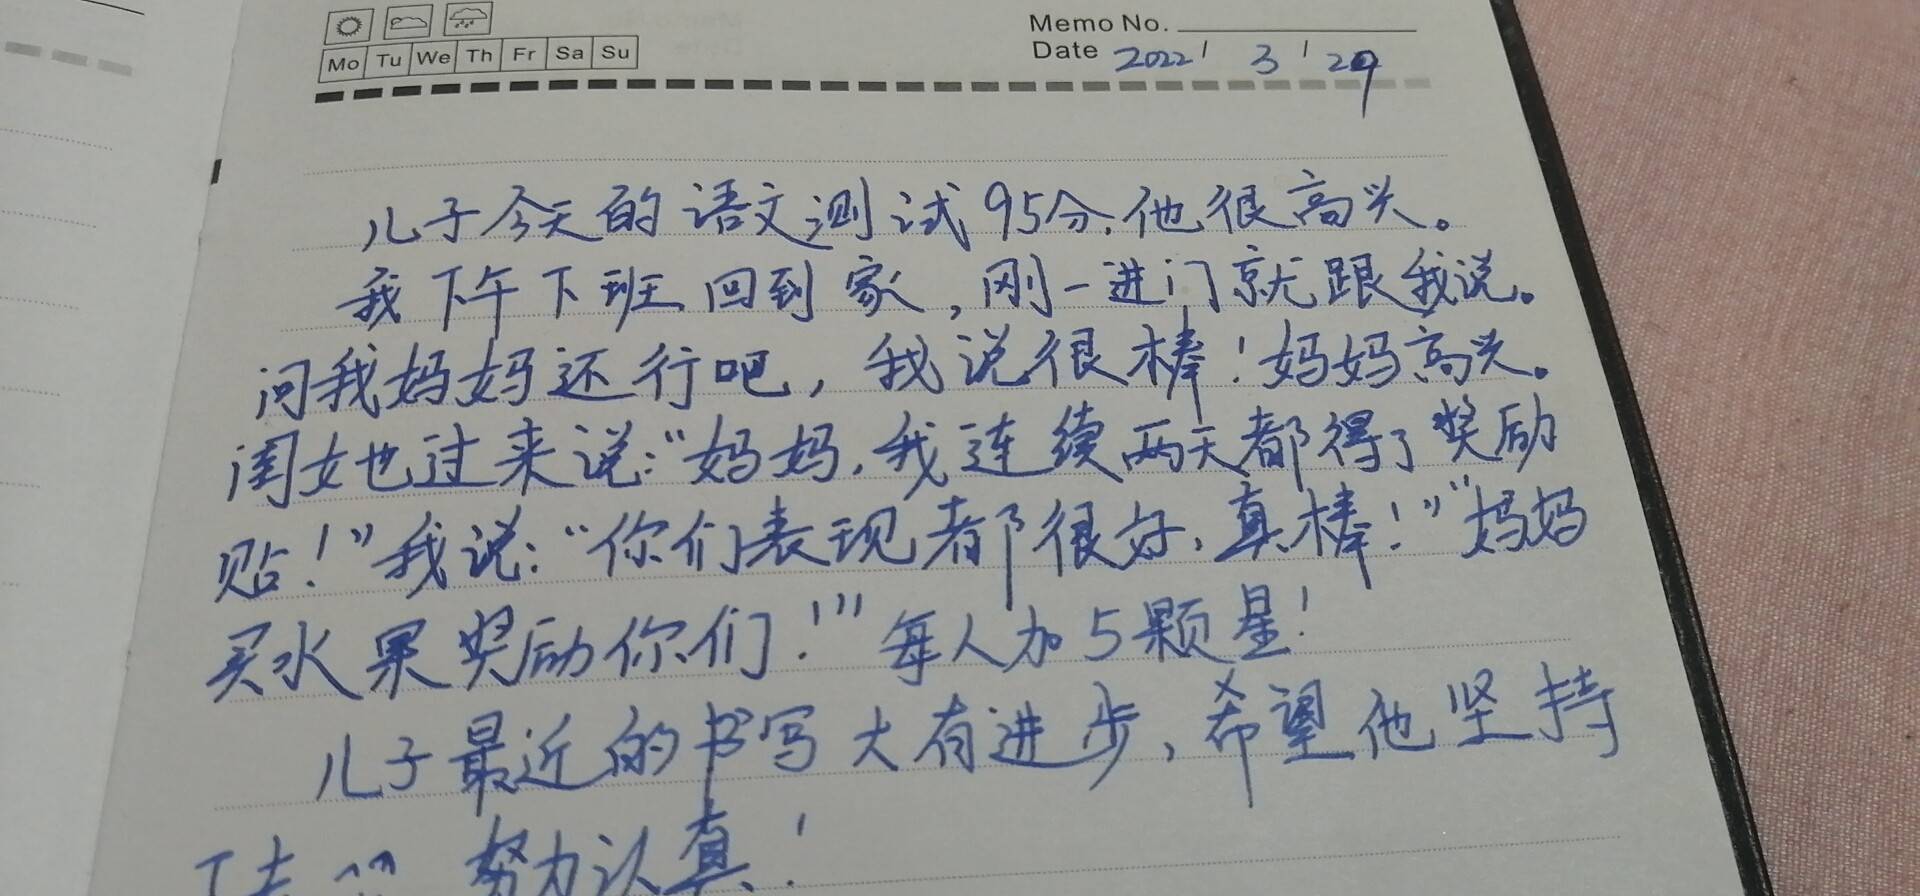 Memo No.
Mo Tu We Th Fr Sa Su
Date 2022 / 3 / 29
儿子今天的语文测试95分,他很高兴。
我下午下班回到家,刚一进门就跟我说。
问我妈妈还行吧,我说很棒!妈妈高兴。
闺女也过来说:“妈妈,我连续两天都得了奖励
贴!”我说:“你们表现都很好,真棒!”“妈妈
买水果奖励你们!'”每人加5颗星!
儿子最近的书写大有进步,希望他坚持
努力认真!